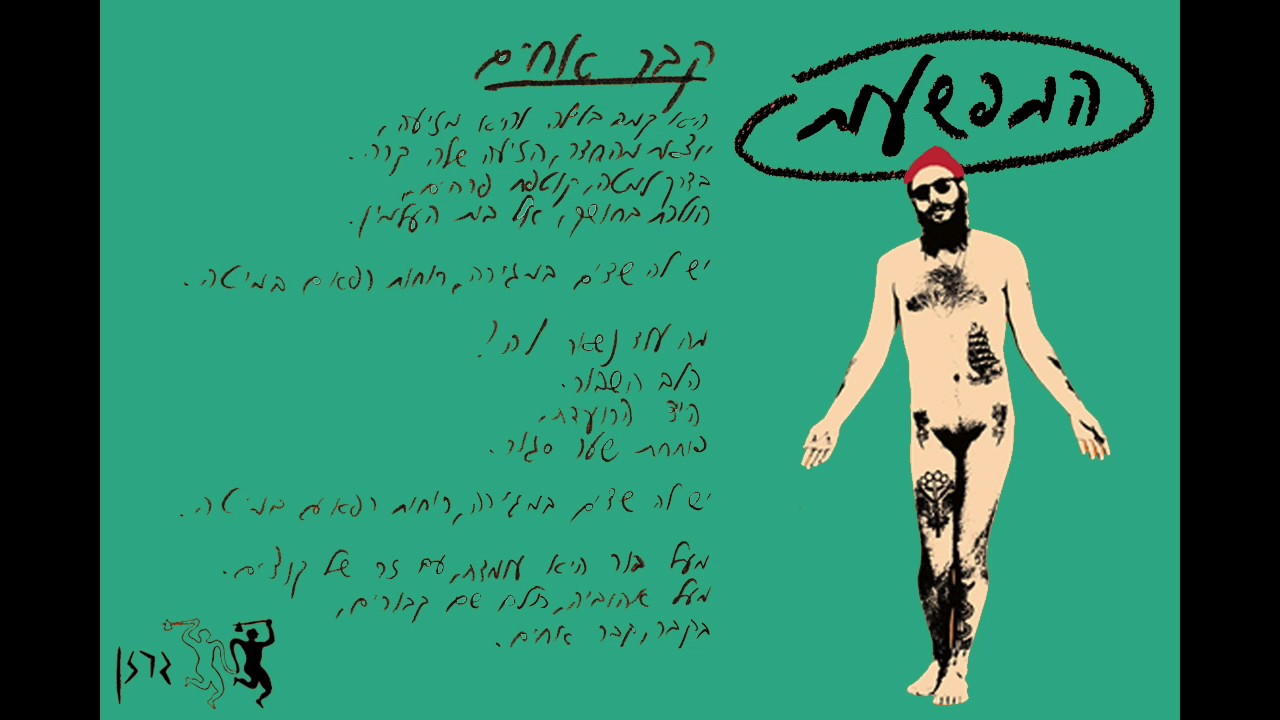 התפשעות
קבר אחים
היא קמה בלילה והיא מזיעה,
יוצאת מהחדר, הזיעה שלה קרה.
בדרך למטה, קוטפת פרחים,
הולכת בחושך, אל בית העלמין.
יש לה שדים במגירה, רוחות רפאים במיטה.
מה עוד נשאר לה?
הלב השבור.
היד הרועדת,
פותחת שער סגור.
יש לה שדים במגירה, רוחות רפאים במיטה.
מעל בור היא עומדת, עם זר של קוצים.
מעל אהוביה, כולם שם קבורים,
בקבר, קבר אחים.
גרזן